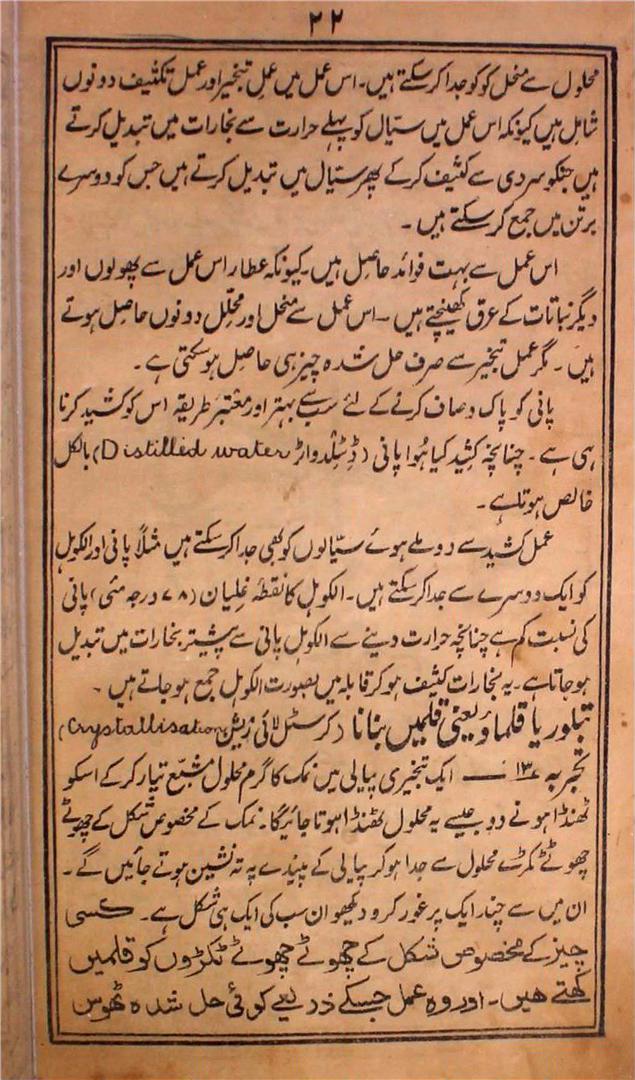 ۲۲
محلول سے منحل کو کو جدا کر سکتے ہیں۔ اس عمل میں عمل تبخیر اور عمل تکثیف دونوں
شامل ہیں کیونکہ اس عمل میں سیّال کو پہلے حرارت سے بخارات میں تبدیل کرتے
ہیں جنکو سردی سے کثیف کرکے پھر سیّال میں تبدیل کرتے ہیں جس کو دوسرے
برتن میں جمع کر سکتے ہیں۔
اس عمل سے بہت فوائد حاصل ہیں۔ کیونکہ عطار اس عمل سے پھولوں اور
دیگر نباتات کے عرق کھینچتے ہیں۔ اس عمل سے منحل اور محلّل دونوں حاصل ہوتے
ہیں۔ گر عمل تبخیر سے صرف حل شدہ چیز ہی حاصل ہو سکتی ہے۔
پانی کو پاک و صاف کرنے کے لئے سب سے بہتر اور معتبر طریقہ اس کو کشید کرنا
ہی ہے۔ چنانچہ کشید کیا ہُوا پانی (ڈسٹلڈ واٹر Distilled water) بالکل
خالص ہوتا ہے۔
عمل کشید سے دو ملے ہوئے سیّالوں کو بھی جدا کر سکتے ہیں مثلاً پانی اور الکوہل
کو ایک دوسرے سے جدا کر سکتے ہیں۔ الکوہل کا نقطۂ غلیان (۷۸ درجہ مئی) پانی
کی نسبت کم ہے چنانچہ حرارت دینے سے الکوہل پانی سے پیشتر بخارات میں تبدیل
ہو جاتا ہے۔ یہ بخارات کثیف ہو کر قابلہ میں بصورت الکوہل جمع ہو جاتے ہیں۔
تبلور یا قلماؤ یعنی قلمیں بنانا (کرسٹل لائی زیشن Crystallisation)
تجربہ ۱۳ء ــــ ایک تبخیری پیالی میں نمک کا گرم محلول مشبّع تیار کرکے اسکو
ٹھنڈا ہونے دو جیسے یہ محلول ٹھنڈا ہوتا جائیگا۔ نمک کے مخصوص شکل کے چھوٹے
چھوٹے ٹکڑے محلول سے جدا ہو کر پیالی کے پیندے پہ تہ نشین ہوتے جائیں گے۔
ان میں سے چند ایک پر غور کرو دیکھو ان سب کی ایک ہی شکل ہے۔ کسی
چیز کے مخصوص شکل کے چھوٹے چھوٹے ٹکڑوں کو قلمیں
کہتے ہیں۔ اور وہ عمل جسکے ذریعے کوئی حل شدہ ٹھوس